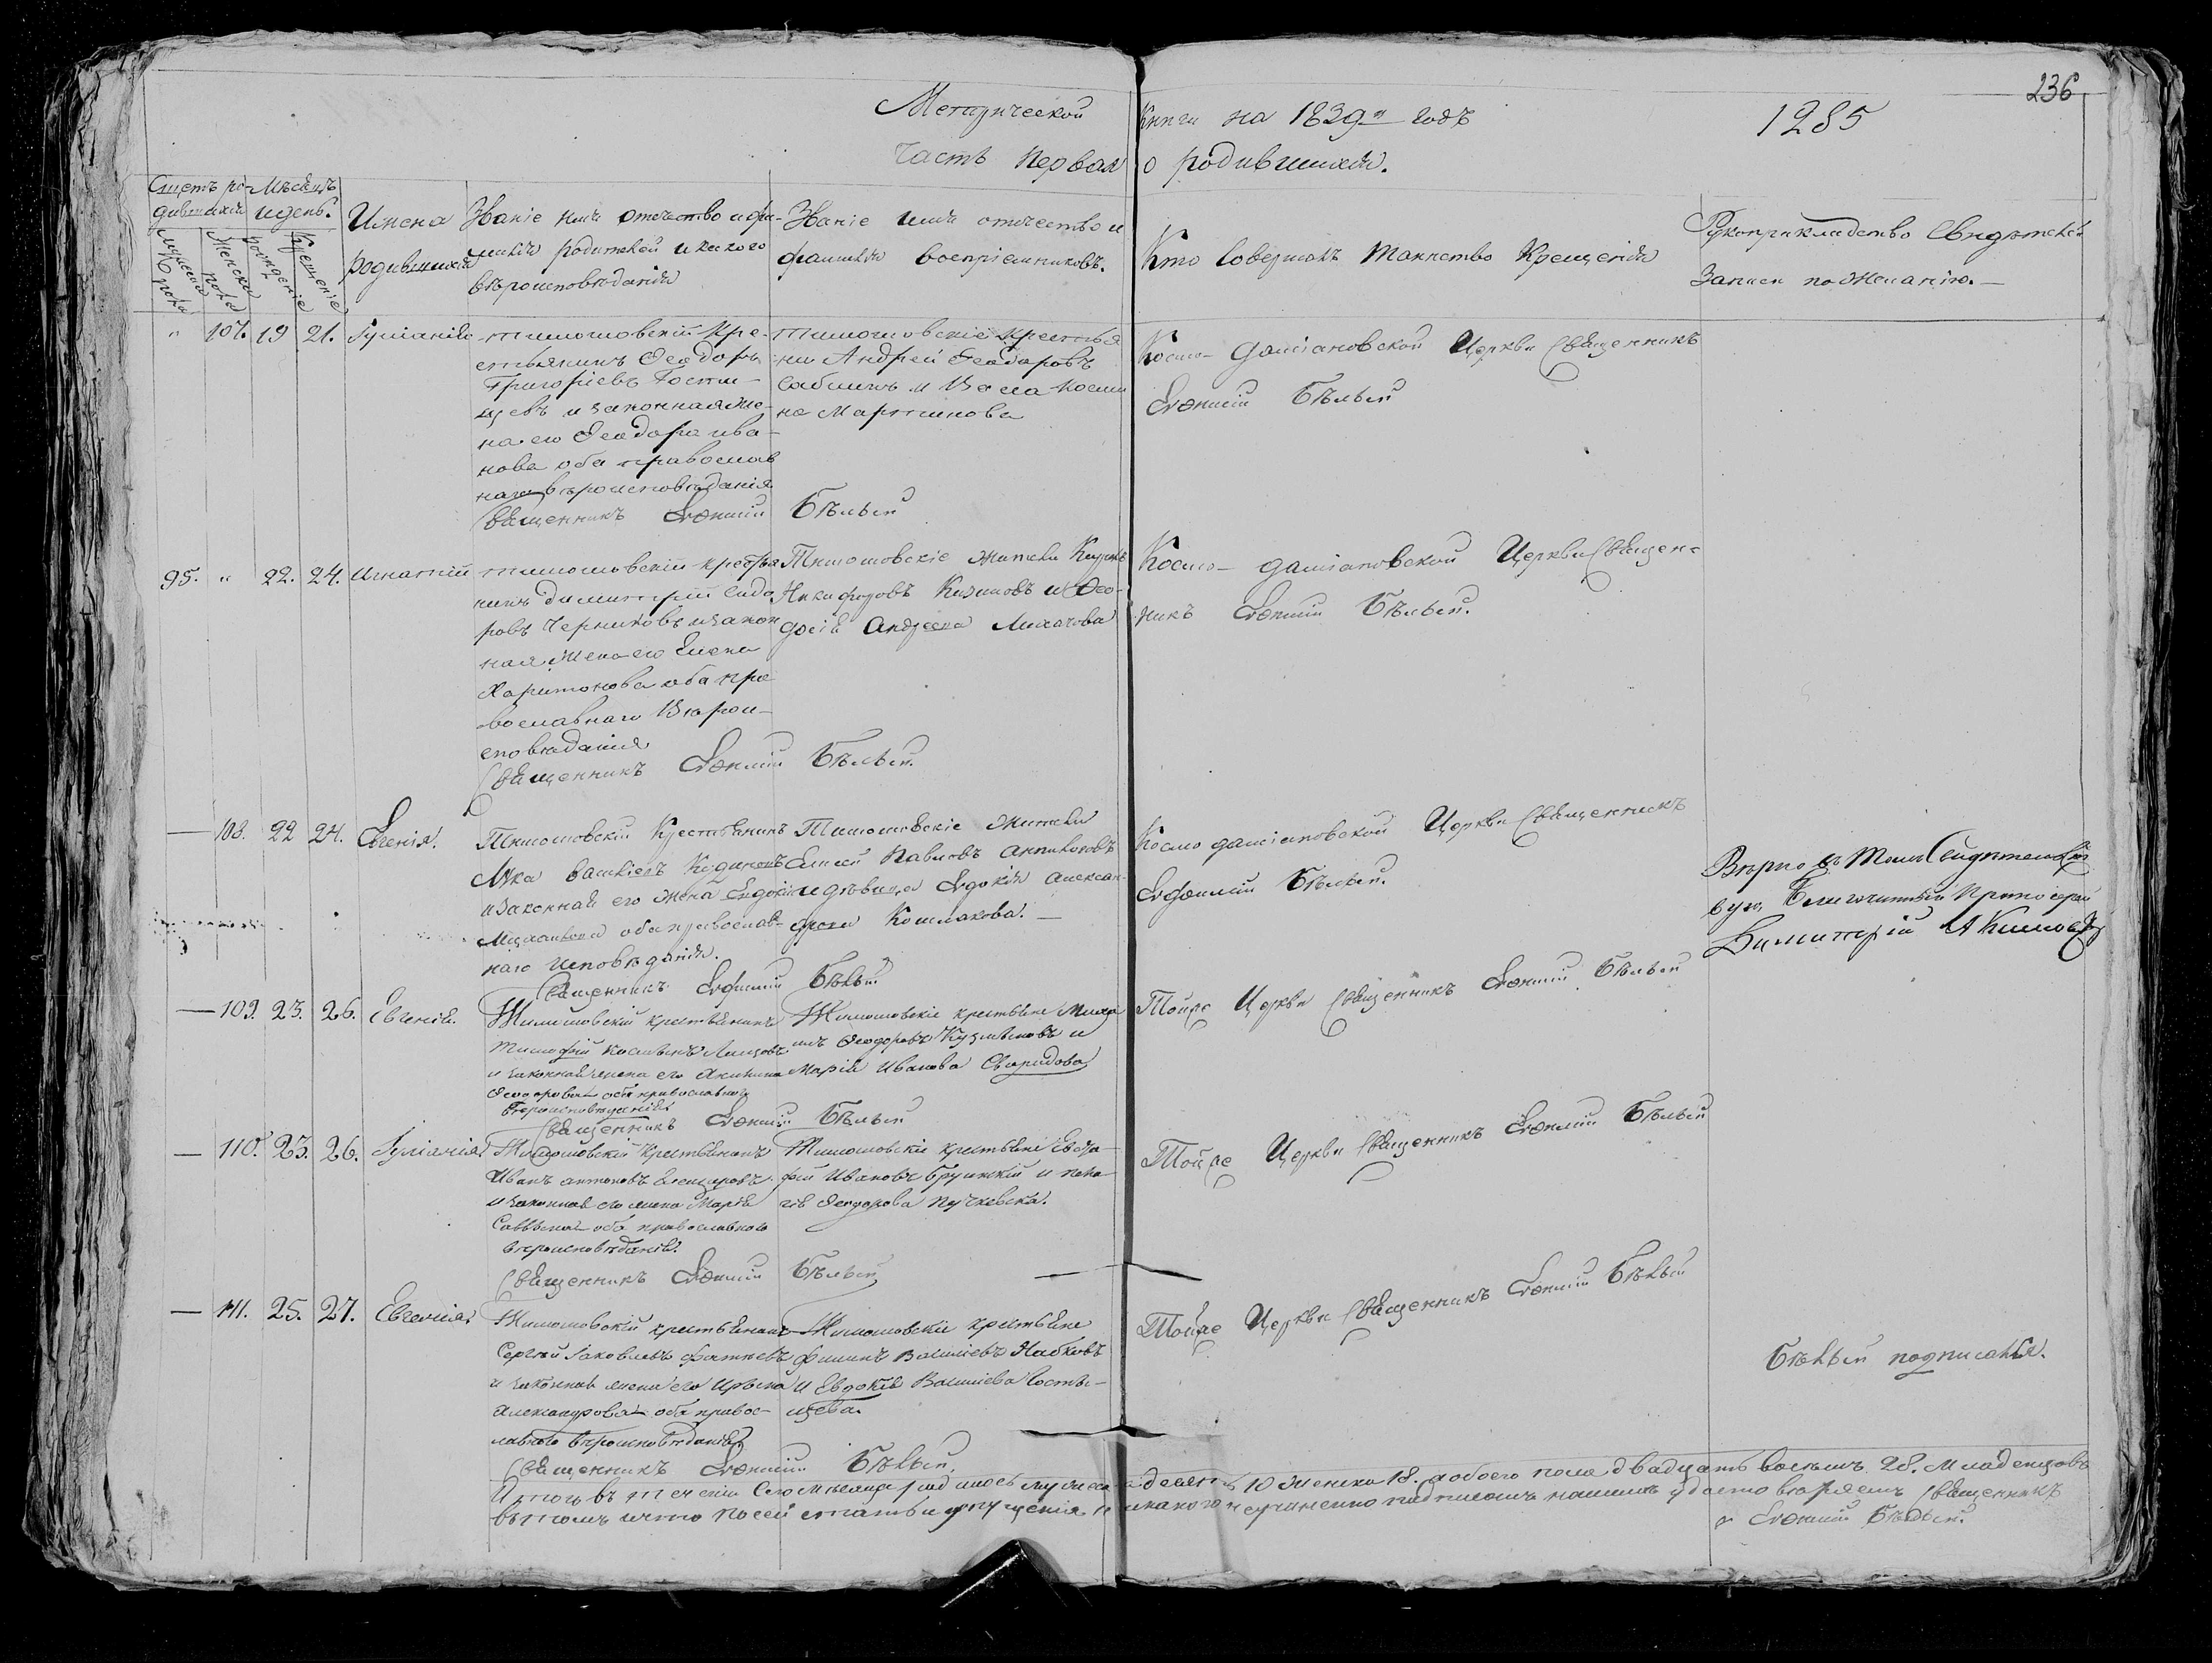 236
Метрической Книги на 1839й годъ
1285
Часть первая о родившихся.
Счетъ ро- Мѣсяцъ
дившихся и день.
Мужеска пола
Женска пола
рожденіе
Крещеніе
Имена
родившихся
Званіе имя отечество и фа-
милія родителей и какого
вѣроисповѣданія
Званіе имя отечество и
фамилія воспріемниковъ.
Кто совершалъ таинство Крещенія
Рукоприкладство Свидѣтелей
Записи по желанію.
" 107. 19 21. Іуліанія
тимошовскій кре-
стьянинъ Феодоръ
Григоріевъ Гости-
щевъ и законная же-
на его Феодора ива-
нова оба православ
наго вѣроисповѣданія
Священникъ Евфимій Бѣлый
тимошовскіе крестья
не Андрей Феодоровъ
Саблинъ и Васса Косми
на Мартинова
Космо-Даміановской Церкви Священникъ
Евфимій Бѣлый
95. " 22. 24. Игнатій
тимошовскій крестья
нинъ Димитрій Сидо
ровъ Черниковъ и закон
ная жена его Елена
Харитонова оба пра
вославнаго Вѣрои-
сповѣданія
Священникъ Евфимій Бѣлый.
Тимошовскіе жители
Никифоровъ и Фео-
досія Андреева
Космо-даміановской Церкви Священ-
никъ Евфимій Бѣлый.
— 108. 22 24. Евгенія.
Тимошовскій Крестьянинъ
Лука
и Законная его жена Евдокія
оба православ-
наго исповѣданія.
Священникъ Евфимій Бѣлый
Тимошовскіе жители
Павловъ
и дѣвица Евдокія Алексан-
дрова Кошлакова. —
Космо даміановской Церкви Священникъ
Евфимій Бѣлый.
Вѣрно въ томъ Свидѣтельст
вую, Благочинный Протоіерей
Димитрій
— 109. 23. 26. Евгенія.
Тимошовскій крестьянинъ
Тимофей Косминъ
и законная жена его Акилина
Феодорова оба православнаго
Вѣроисповѣданія
Священникъ Евфимій Бѣлый
Тимошовскіе крестьяне Миха
илъ Феодоровъ Кузменковъ и
Марія Иванова Свиридова
Тойже Церкви Священникъ Евфимій Бѣлый
— 110. 23. 26. Іуліанія
Тимошовскій крестьянинъ
Иванъ антоновъ
и законная его жена Марія
Саввина оба православнаго
вѣроисповѣданія.
Священникъ Евфимій Бѣлый
Тимошовскіе крестьяне Евста-
фій Ивановъ и пела-
гія Феодорова
Тойже Церкви Священникъ Евфимій Бѣлый
— 111. 25. 27. Евгенія
Тимошовскій крестьянинъ
Сергѣй Іаковлевъ
и законная жена его Ирина
Александрова оба правос-
лавнаго вѣроисповѣданія
Священникъ Евфимій Бѣлый.
Тимошовскіе крестьяне
Филипъ Василіевъ
и Евдокія Василіева Гости-
щева.
Тойже Церкви Священникъ Евфимій Бѣлый
Бѣлый подписался.
Итого въ теченіи Сего мѣсяца родилось мужеска десять 10 женска 18. а обоего пола двадцать восемь 28. Младенцовъ
въ томъ что по сей статьи упущенія никакого неучиненно подписомъ нашимъ удостовѣряемъ Священникъ
Евфимій Бѣлый.